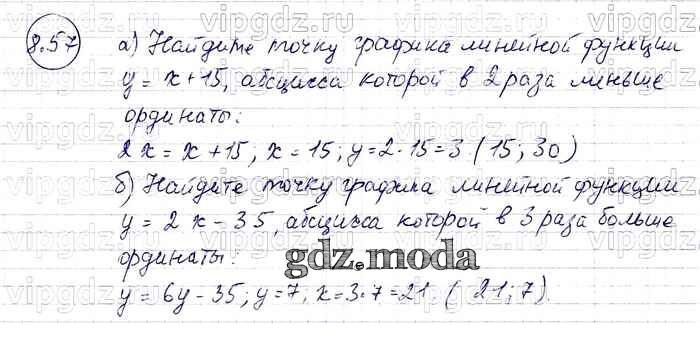 8.57 а) Найдите точку графика линейной функции
y = x + 15, абсцисса которой в 2 раза меньше
ординаты:
2x = x + 15; x = 15; y = 2·15 = 3 (15; 30)
б) Найдите точку графика линейной функции
y = 2x - 35, абсцисса которой в 3 раза больше
ординаты:
gdz.moda
y = 6y - 35; y = 7; x = 3·7 = 21. (21; 7).
vipgdz.ru